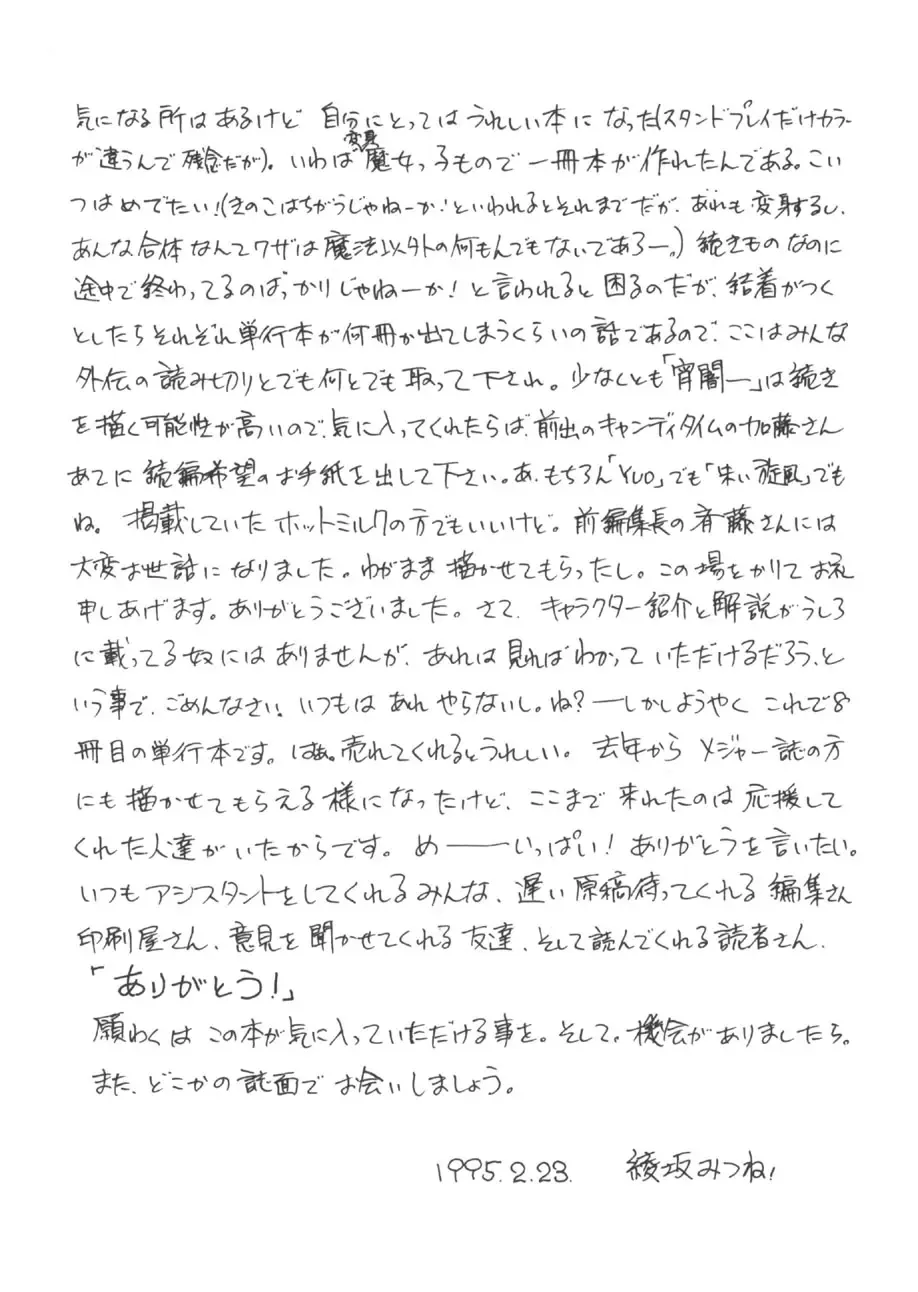 気になる所はあるけど 自分にとっては うれしい本に なった(スタンドプレイだけカラー
が違うんで残念だが)。いわば変身魔女っ子もので一冊本が作れたんである。こい
つはめでたい!(きのこはちがうじゃねーか!といわれるとそれまでだが、あれも変身するし、
あんな合体なんてワザは魔法以外の何もんでもないであろー。)続きものなのに
途中で終わってるのばっかりじゃねーか!と言われると困るのだが、結着がつく
としたらそれぞれ単行本が何冊か出てしまうくらいの話であるので、ここはみんな
外伝の読み切りとでも何とでも取って下され。少なくとも「宵闇ー」は続き
を描く可能性が高いので、気に入ってくれたらば、前出のキャンディタイムの加藤さん
あてに続編希望のお手紙を出して下さい。あ、もちろん「YUO」でも「朱い旋風」でも
ね。 掲載していた ホットミルクの方でもいいけど。前編集長の斉藤さんには
大変お世話になりました。わがまま描かせてもらったし。この場をかりてお礼
申しあげます。ありがとうございました。さて、キャラクター紹介と解説がうしろ
に載ってる奴にはありませんが、あれは見ればわかっていただけるだろう、と
いう事で、ごめんなさい。いつもは あれ やらないし。ね?ーしかしようやく これで8
冊目の単行本です。はぁ。売れてくれるとうれしい。去年から メジャー誌の方
にも描かせてもらえる様になったけど、ここまで来れたのは応援して
くれた人達がいたからです。めーーーいっぱい!ありがとうを言いたい。
いつもアシスタントをしてくれるみんな、遅い原稿待ってくれる編集さん
印刷屋さん、意見を聞かせてくれる友達、そして読んでくれる読者さん、
「ありがとう!」
願わくは この本が気に入っていただける事を。そして。機会がありましたら。
また、どこかの誌面で お会いしましょう。
1995.2.23. 綾坂みつね!